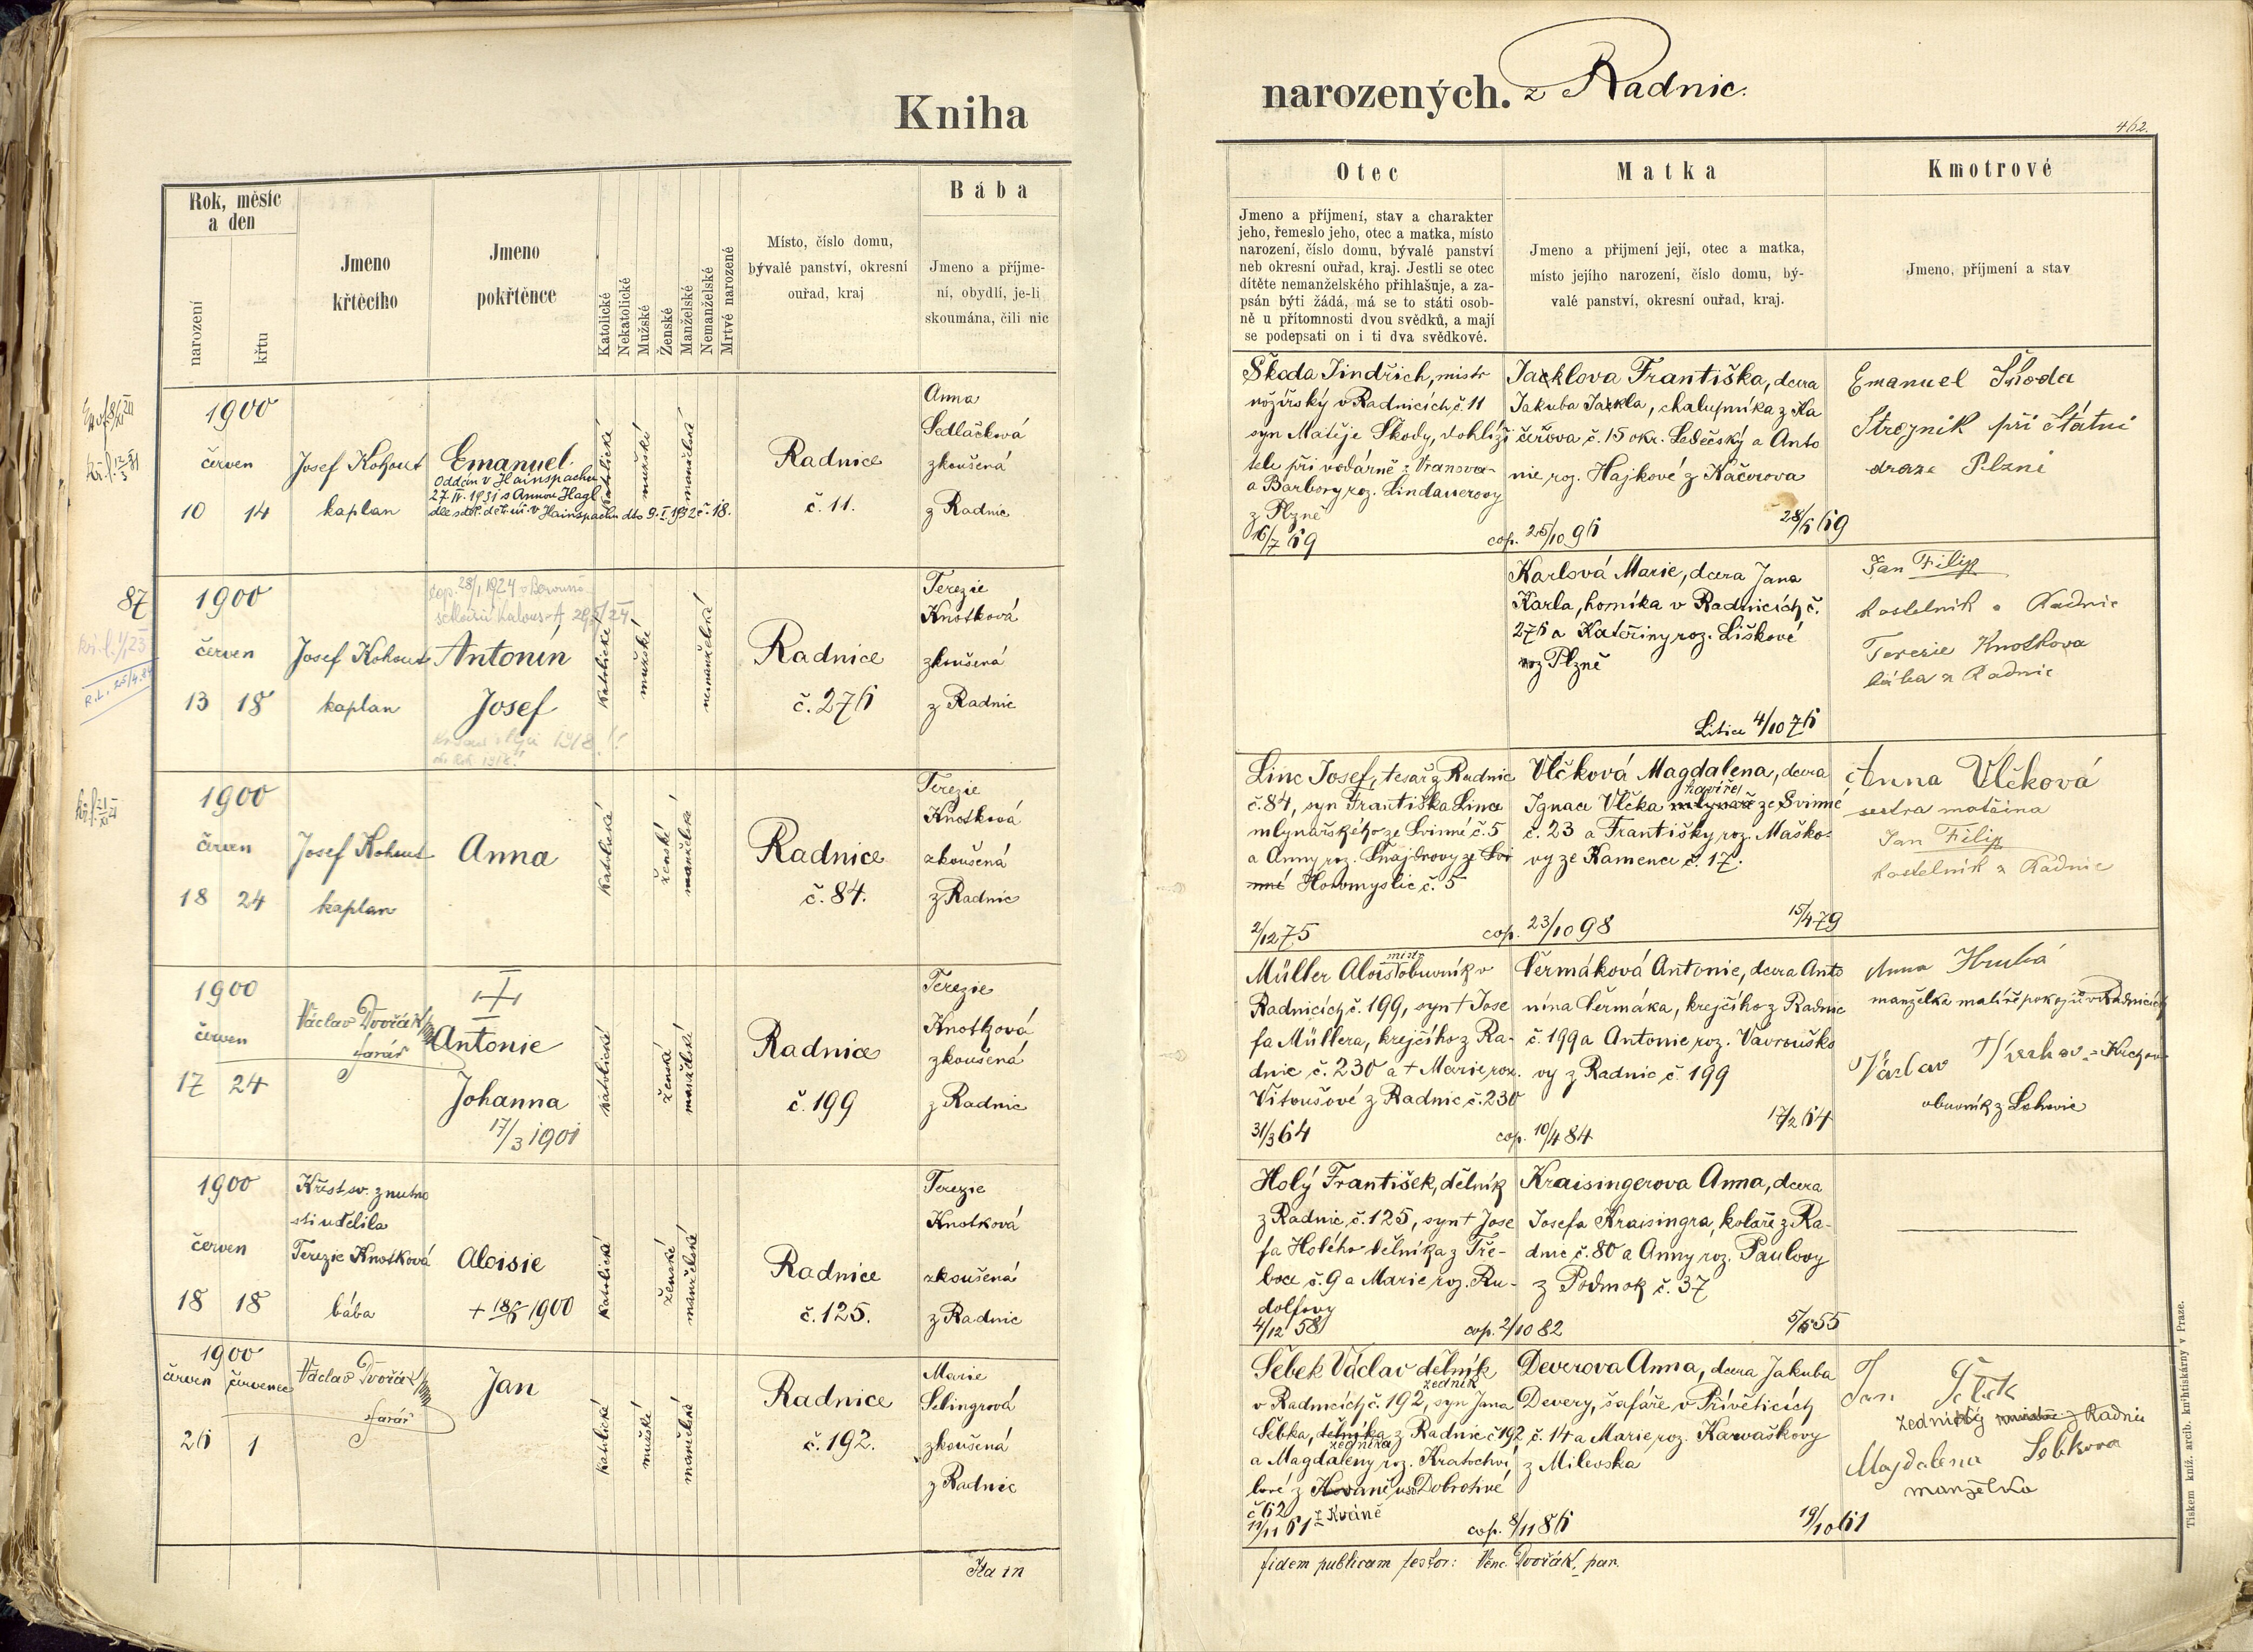 Kniha
narozených. z Radnic.
462.
Rok, měsíc
a den
narození
křtu
Jmeno
křtěcího
Jmeno
pokřtěnce
Katolické
Nekatolické
Mužské
Ženské
Manželské
Nemanželské
Mrtvě narozené
Místo, číslo domu,
bývalé panství, okresní
ouřad, kraj
Bába
Jmeno a příjme-
ní, obydlí, je-li
skoumána, čili nic
Otec
Jmeno a příjmení, stav a charakter
jeho, řemeslo jeho, otec a matka, místo
narození, číslo domu, bývalé panství
neb okresní ouřad, kraj. Jestli se otec
dítěte nemanželského přihlašuje, a za-
psán býti žádá, má se to státi osob-
ně u přítomnosti dvou svědků, a mají
se podepsati on i ti dva svědkové.
Matka
Jmeno a přijmení její, otec a matka,
místo jejího narození, číslo domu, bý-
valé panství, okresní ouřad, kraj.
Kmotrové
Jmeno, příjmení a stav
1900
červen
10 14
Josef Kohout
kaplan
Emanuel.
Oddán v Hainspachu
27.IV.1931 s Annou Hagl
dle sděl. děk. úř. v Hainspachu dto 9.I.1932 č. 18.
katolické
mužské
manželské
Radnice
č. 11.
Anna
Sedláčková
zkoušená
z Radnic
Škoda Jindřich, mistr
nožířský v Radnicích č. 11
syn Matěje Škody, dohlíži
tele při vodárně z Vranova
a Barbory roz. Lindauerovy
z Plzně
16/7 69
Jacklova Františka, dcera
Jakuba Jackla, chalupníka z Ka
čeřova č. 15 okr. Ledečský a Anto
nie roz. Hajkové z Kačerova
cop. 25/10 96
28/6 69
Emanuel Škoda
Strojnik při Státni
draze Plzni
87
1900
červen
13 18
Josef Kohout
kaplan
cop. 28/1 1924 v Berouně
Antonín
Josef
katolické
mužské
nemanželské
Radnice
č. 276
Terezie
Knotková
zkoušená
z Radnic
Karlová Marie, dcera Jana
Karla, horníka v Radnicích č.
276 a Kateřiny roz. Liškové
z Plzně
Litice 4/10 76
Jan Filip
kostelník z Radnic
Terezie Knotkova
bába z Radnic
1900
červen
18 24
Josef Kohout
kaplan
Anna
katolické
ženské
manželské
Radnice
č. 84.
Terezie
Knotková
zkoušená
z Radnic
Linc Josef, tesař z Radnic
č. 84, syn Františka Lince
mlynařského ze Svinné č. 5
a Anny roz. Šnajdrovy ze Svi
nné Horomyslic č. 5
2/12 75
Vlčková Magdalena, dcera
havíře
Ignace Vlčka mlynaře ze Svinné
č. 23 a Františky roz. Maško-
vy ze Kamence č. 17.
cop. 23/10 98
15/4 79
Anna Vlčková
sestra matčina
Jan Filip
kostelník z Radnic
1900
červen
17 24
Václav Dvořák
farář
Antonie
Johanna
17/3 1901
katolické
ženské
manželské
Radnice
č. 199
Terezie
Knotková
zkoušená
z Radnic
mistr
Müller Alois obuvník v
Radnicích č. 199, syn † Jose
fa Müllera, krejčího z Ra-
dnic č. 230 a † Marie roz.
Vitoušové z Radnic č. 230
31/3 64
Čermáková Antonie, dcera Anto
nína Čermáka, krejčího z Radnic
č. 199 a Antonie roz. Vavrouško
vy z Radnic č. 199
cop. 10/4 84
17/2 64
Anna Hrubá
manželka malíře pokojů v Radnicích
Václav
obuvník z Lohovic
1900
červen
18 18
Křest sv. z nutno
sti udělila
Terezie Knotková
bába
Aloisie
+ 18/6 1900
katolické
ženské
manželské
Radnice
č. 125.
Terezie
Knotková
zkoušená
z Radnic
Holý František, dělník
z Radnic č. 125, syn † Jose
fa Holého dělníka z Tře-
boce č. 9 a Marie roz. Ru-
dolfovy
4/12 58
Kraisingerova Anna, dcera
Josefa Kraisingra, koláře z Ra-
dnic č. 80 a Anny roz. Paulovy
z Podmok č. 37
cop. 2/10 82
5/6 55
1900
červen července
26 1
Václav Dvořák
farář
Jan
katolické
mužské
manželské
Radnice
č. 192.
Marie
Šelingrová
zkoušená
z Radnic
Šebek Václav dělník
zedník
v Radnicích č. 192, syn Jana
Šebka, dělníka z Radnic č 192
zedníka
a Magdaleny roz. Kratochvi
lové z Kváně u sv. Dobrotivé
č 62 z Kváně
11/11 61
Deverova Anna, dcera Jakuba
Devery, šafáře v Přívěticích
č. 14 a Marie roz. Karvaškovy
z Milevska
cop. 8/11 86
19/10 61
Jan Šebek
zednický mistr z Radnic
Magdalena Šebkova
manželka
Ita in
fidem publicam testor: Venc. Dvořák, par.
Tiskem kniž. arcib. knihtiskárny v Praze.